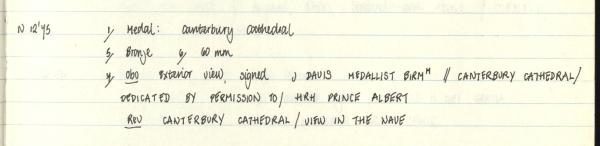 N 12'45 1, Medal: Canterbury Cathedral
5, Bronze 6, 60 mm
4, obv Exterior view, signed J DAVIS MEDALLIST BIRMᴹ // CANTERBURY CATHEDRAL/
DEDICATED BY PERMISSION TO/ HRH PRINCE ALBERT
REV CANTERBURY CATHEDRAL / VIEW IN THE NAVE